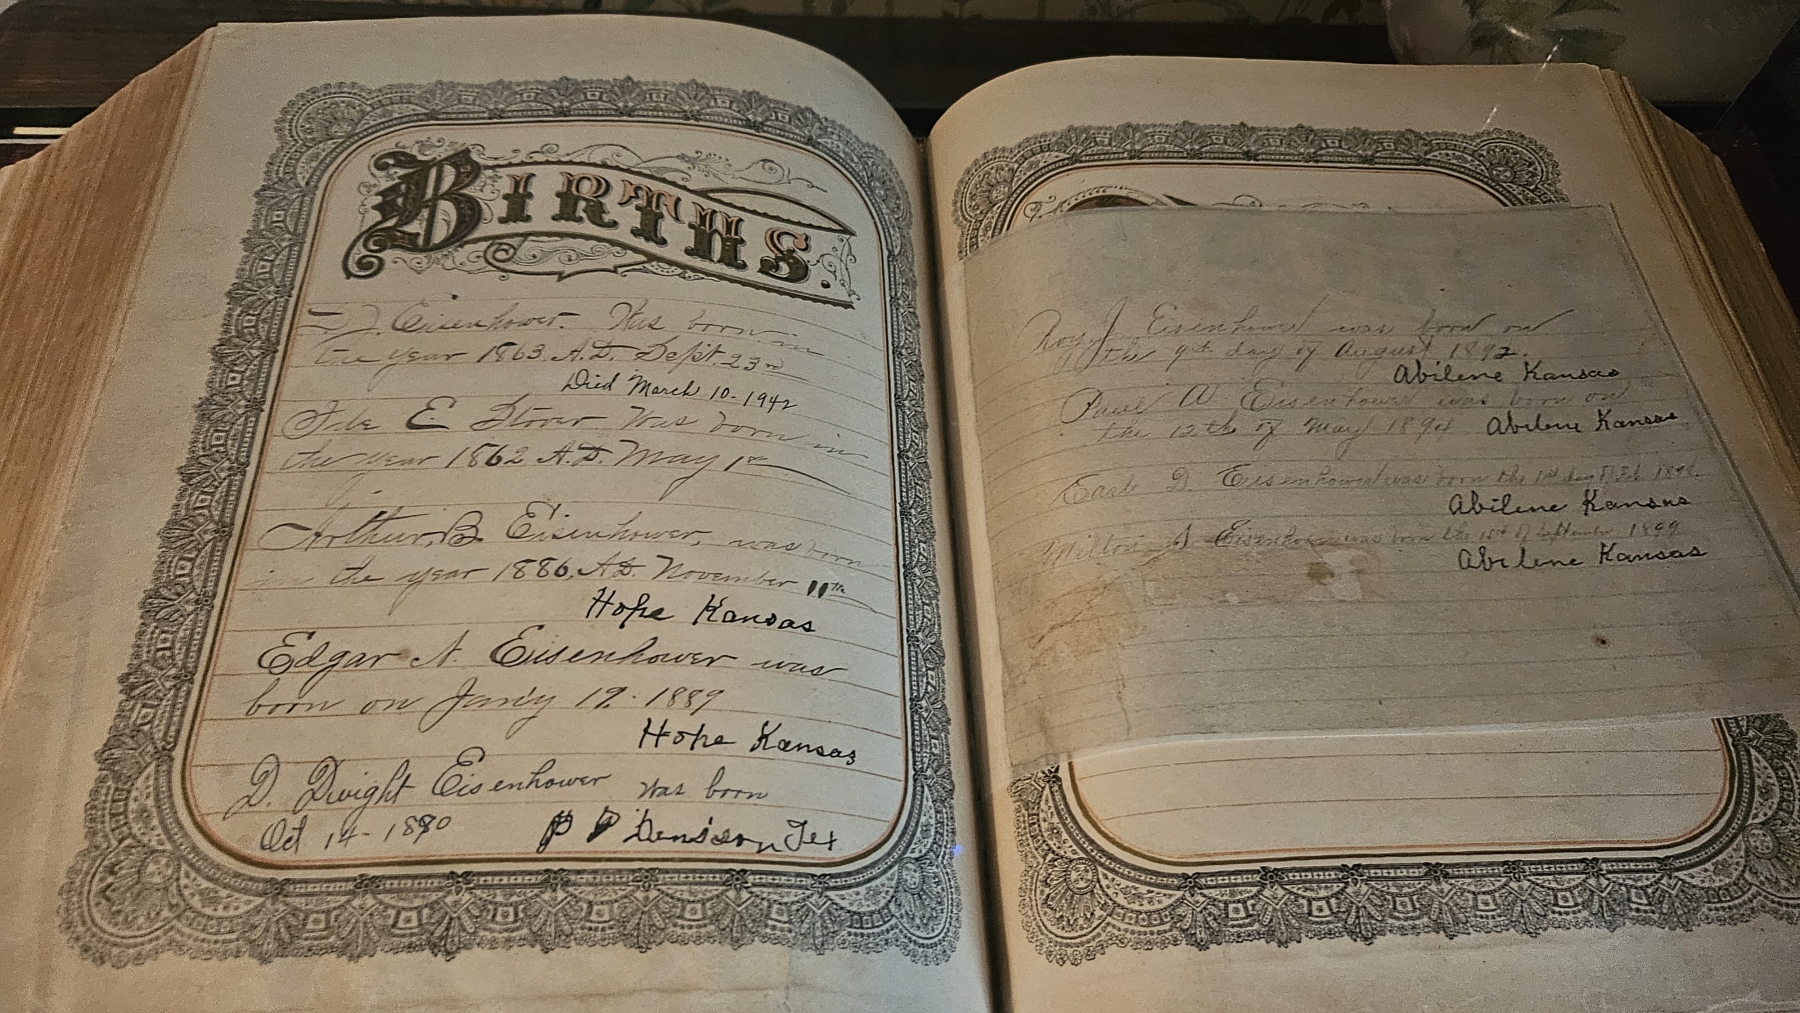 BIRTHS.
D. J. Eisenhower. Was born in
the year 1863. A.D. Sept. 23rd
Died March 10-1942
Ida E Stover Was born in
the year 1862 A.D. May 1st
Arthur, B. Eisenhower, was born
in the year 1886, A.D. November 11th
Hope Kansas
Edgar N. Eisenhower was
born on Jan'y 19-1889
Hope Kansas
D. Dwight Eisenhower was born
Oct 14-1890 Denison Tex
Roy J. Eisenhower was born on
the 9th day of August 1892.
Abilene Kansas
Paul A. Eisenhower was born on
the 12th of May 1894 Abilene Kansas
Earl D. Eisenhower was born the 1st day of Feb. 1898.
Abilene Kansas
Milton S. Eisenhower was born the 15st of September 1899
Abilene Kansas